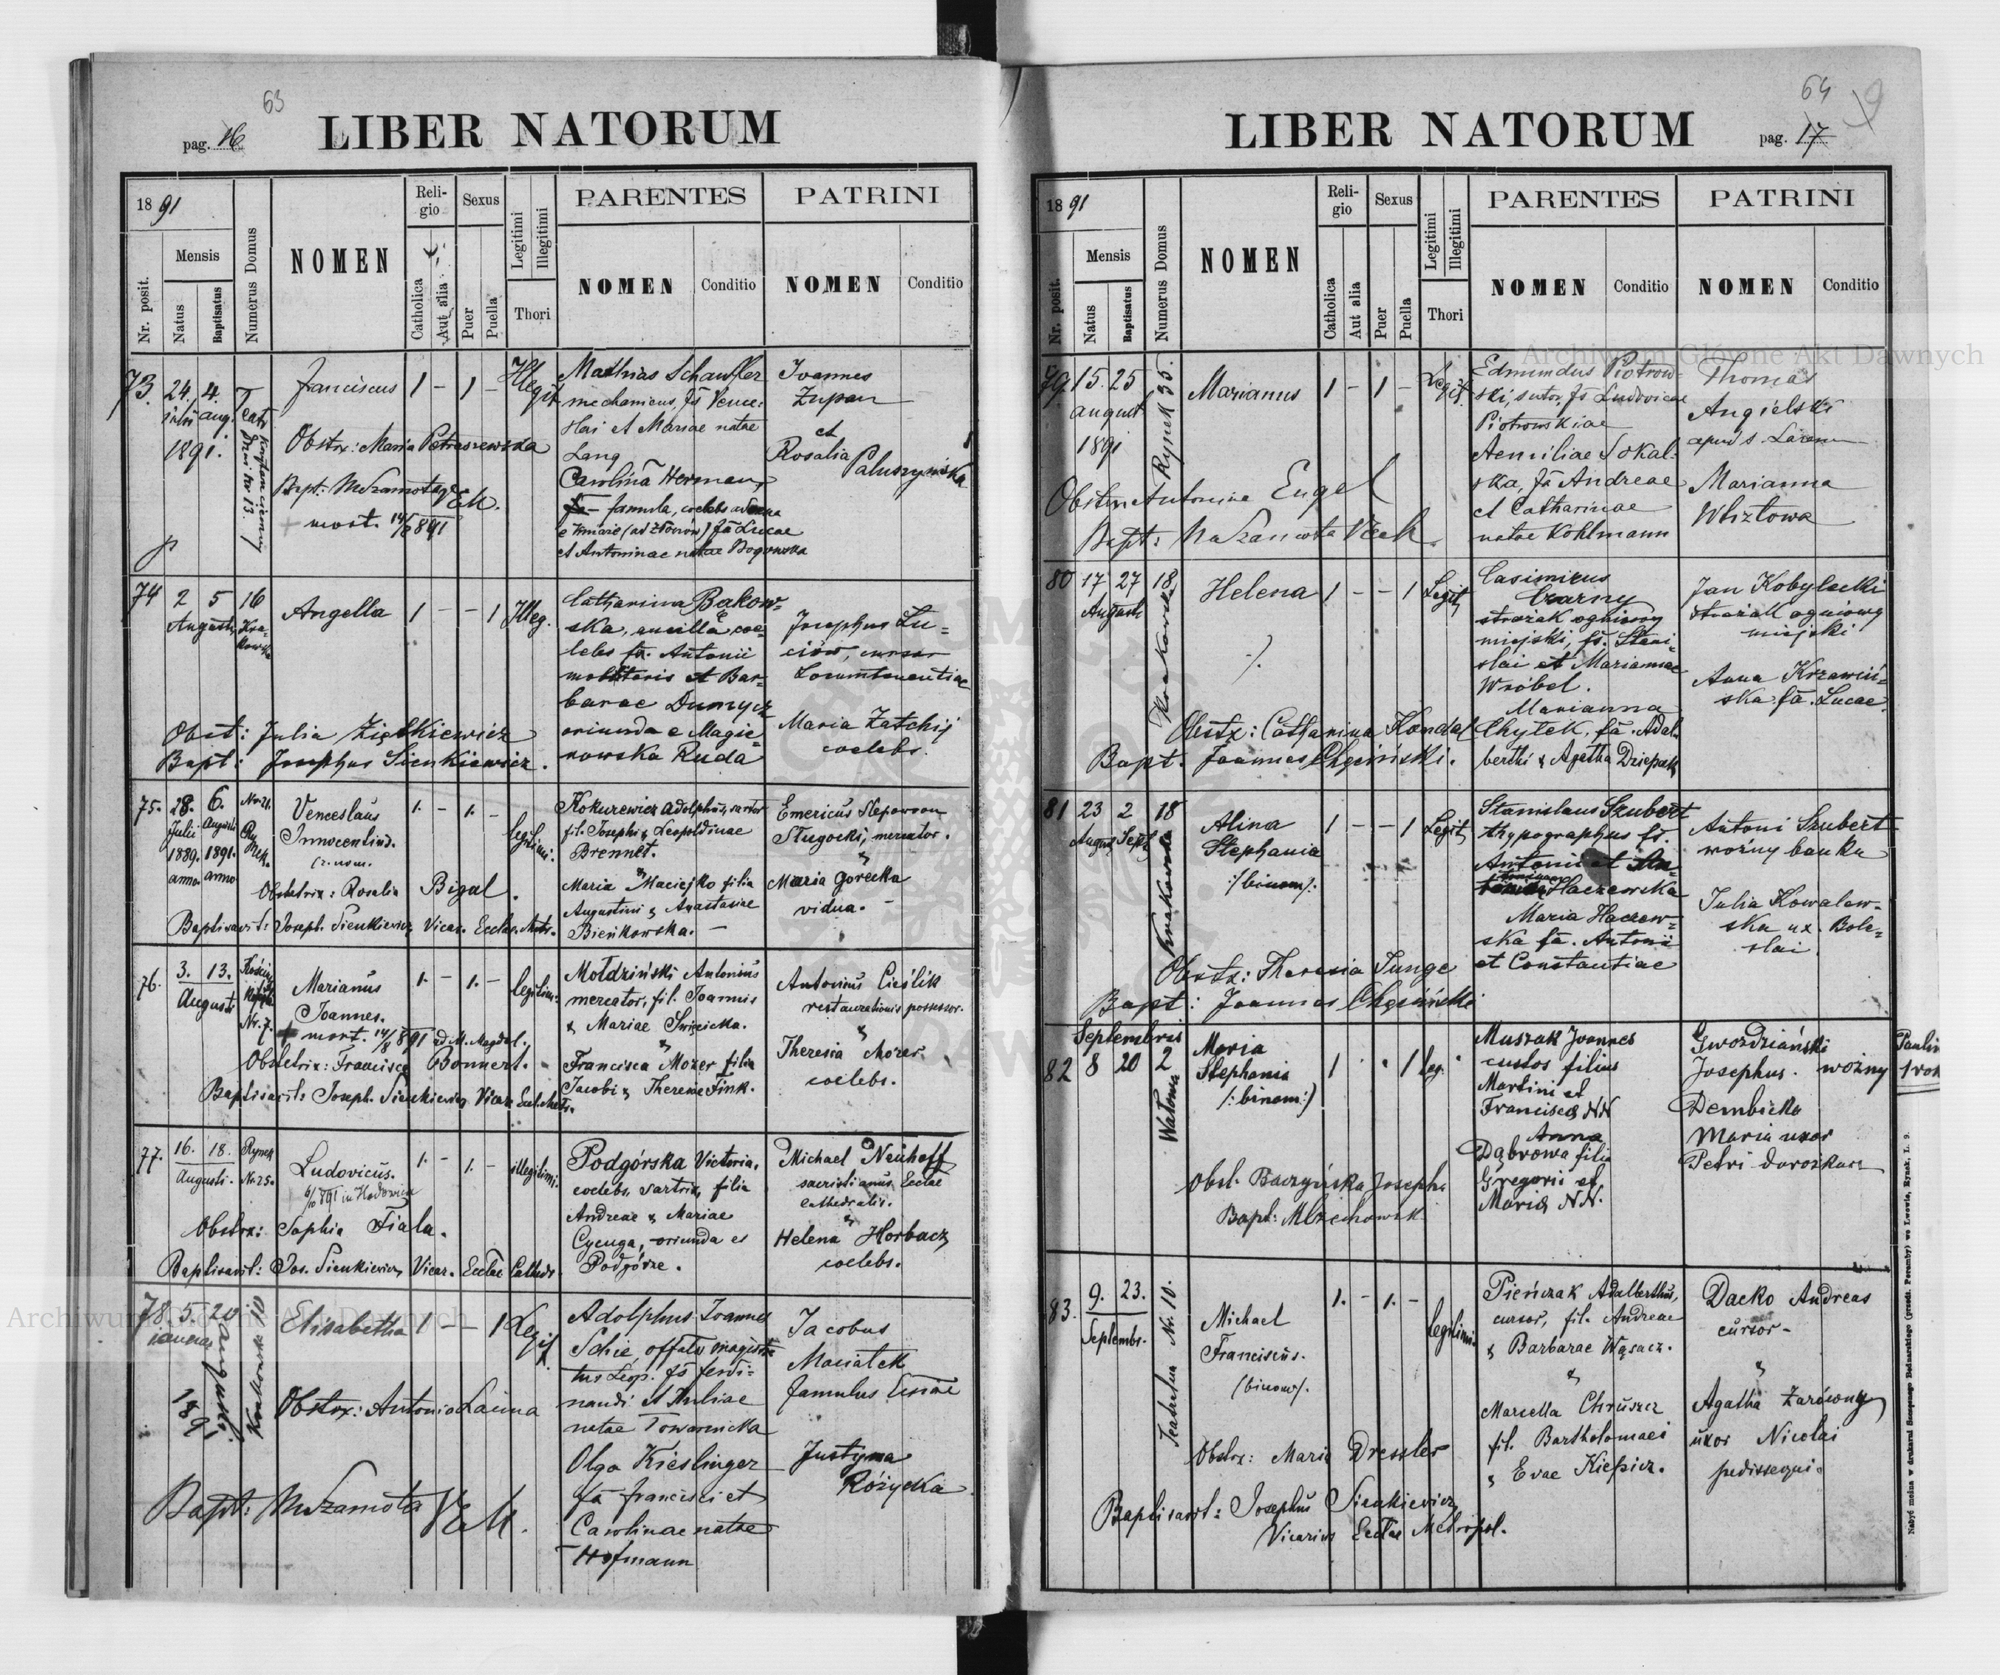 63
pag. 16
LIBER NATORUM
1891
Nr. posit.
Mensis
Natus
Baptisatus
Numerus Domus
NOMEN
Religio
Catholica
Aut alia
Sexus
Puer
Puella
Legitimi
Illegitimi
Thori
PARENTES
NOMEN
Conditio
PATRINI
NOMEN
Conditio
73
24. 4.
julii aug.
1891.
Franciscus
1 – 1 –
Illegit
Obstrx: Maria Petraszewska
Bapt. MSzamota VEM.
+ mort. 14/8 891
Mathias Schauffler
mechanicus, fs Vence-
slai et Mariae natae
Lang
Carolina Herman
famula, coelebs
et Antoninae natae
Ioannes
Zupan
et
Rosalia Paluszyńska
74
2 5
Augusti
16
Kra-
kowska
Angella
1 – – 1
Illeg.
Obst: Julia Ziętkiewicz
Bapt: Josephus Sienkiewicz.
Catharina Bakow-
ska, ancilla, coe-
lebs fa. Antonii
et Bar-
barae Dumycz
oriunda e Magie-
rowska Ruda
Josephus Lu-
ciów, cursor
Locumtenentiae
Maria Zatchij
coelebs.
75.
28. 6.
Julii Augusti
1889. 1891.
anno anno
Nr. 21.
Rynek.
Venceslaus
Innocentius.
1. – 1. –
legitimi.
Obstetrix: Rosalia Bigal.
Baptisavit: Joseph. Sienkiewicz Vicar. Eccles. Metr.
Kokurewicz Adolphus, sartor
fil. Josephi & Leopoldinae
Brennet.
&
Maria Maciejko filia
Augustini & Anastasiae
Bieńkowska. –
Emericus Stepowron
Sługocki, mercator.
&
Maria Gorecka
vidua. –
76.
3. 13.
Augusti
Nr. 7.
Marianus
Joannes.
1. – 1. –
legitim.
+ mort. 14/8 891 ad M. Magdal.
Obstetrix: Francisca Bonnert.
Baptisavit: Joseph. Sienkiewicz Vicar. Eccl. Metr.
Mołdziński Antonius
mercator, fil. Joannis
& Mariae Swięcicka.
&
Francisca Mozer filia
Jacobi & Theresiae Fink.
Antonius Cieślik
restaurationis possessor.
&
Theresia Mozer
coelebs.
77.
16. 18.
Augusti.
Rynek
Nr. 25.
Ludovicus.
1. – 1. –
illegitimi.
Obstrx: Sophia Fiala.
Baptisavit: Jos. Sienkiewicz Vicar. Ecclae Cathedr.
Podgórska Victoria,
coelebs, sartrix, filia
Andreae & Mariae
Cycuga, oriunda es
Podgórze.
Michael Neuhoff
sacristianus Ecclae
cathedralis.
&
Helena Horbacz
coelebs.
78.
5. 20
1891
Krakowska 10
Elisabetha
1 – – 1
Legit
Obstrx: Antonia Launa
Bapt: MSzamota VEM.
Adolphus Ioannes
Schie,
tus Leop. fs ferdi-
nandi et Juliae
natae Towarnicka
Olga Kieslinger
fa francisci et
Carolinae natae
Hofmann
Jacobus
Maciałek
famulus
Justyna
Różycka
64
pag. 17
LIBER NATORUM
1891
Nr. posit.
Mensis
Natus
Baptisatus
Numerus Domus
NOMEN
Religio
Catholica
Aut alia
Sexus
Puer
Puella
Legitimi
Illegitimi
Thori
PARENTES
NOMEN
Conditio
PATRINI
NOMEN
Conditio
79
15. 25
august
1891
Rynek 35.
Marianus
1 – 1 –
Legit.
Obstrx Antonina Engel
Bapt: MSzamota VEcM.
Edmundus Piotrow-
ski, sutor, fs Ludovicae
Piotrowskiae
Aemiliae Sokal-
ska, fa Andreae
et Catharinae
natae Kohlmann
Thomas
Angielski
Marianna
80
17 27
Augusti
18
Krakowska
Helena
1 – – 1
Legit
Obstx: Catharina Kondal
Bapt. Joannes Chęciński.
Casimirus
Czarny
strażak ogniowy
miejski, fs. Stani-
slai et Mariannae
Wróbel.
Marianna
Chytek, fa. Adal-
berthi & Agatha Dziepak
Jan Kobylecki
strażak ogniowy
miejski
Anna Krzawiń-
ska fa. Lucae.
81
23 2
August Sept
18
Krakowska
Alina
Stephania
/:binom:/.
1 – – 1
Legit
Obstx: Theresia Tunge
Bapt: Joannes Chęciński
Stanislaus Szubert
thypographus fs.
Antonii et
Haczewska
Maria Haczew-
ska fa. Antonii
et Constantiae
Antoni Szubert
woźny banku
Julia Kowalew-
ska ux. Bole-
slai.
82
Septembris
8 20
2
Wałowa
Maria
Stephania
(:binom:)
1 . 1
leg.
Obst. Baczyńska Josepha
Bapt: MOrzechowsk
Muszak Joannes
custos filius
Martini et
Francisca NN
Anna
Dąbrowa filia
Gregorii et
Maria NN.
Gwoździański
Josephus. woźny
Dembicka
Maria uxor
Petri dorożkarz
83.
9. 23.
Septembr.
Teatralna Nr. 10.
Michael
Franciscus.
/binom/.
1. – 1. –
legitimi.
Obstrx: Maria Dressler
Baptisavit: Josephus Sienkiewicz
Vicarius Ecclae Metropol.
Pieńczak Adalberthus,
cursor, fil. Andreae
& Barbarae Wąsacz.
&
Marcella Chruszcz
fil. Bartholomaei
& Evae Kiepicz.
Dacko Andreas
cursor –
&
Agatha Żarówny
uxor Nicolai
pedissequi.
Nabyć można w drukarni Szczęsnego Bednarskiego (przedt. Poremby) we Lwowie, Rynek, L. 9.
Archiwum Główne Akt Dawnych
Archiwum Główne Akt Dawnych